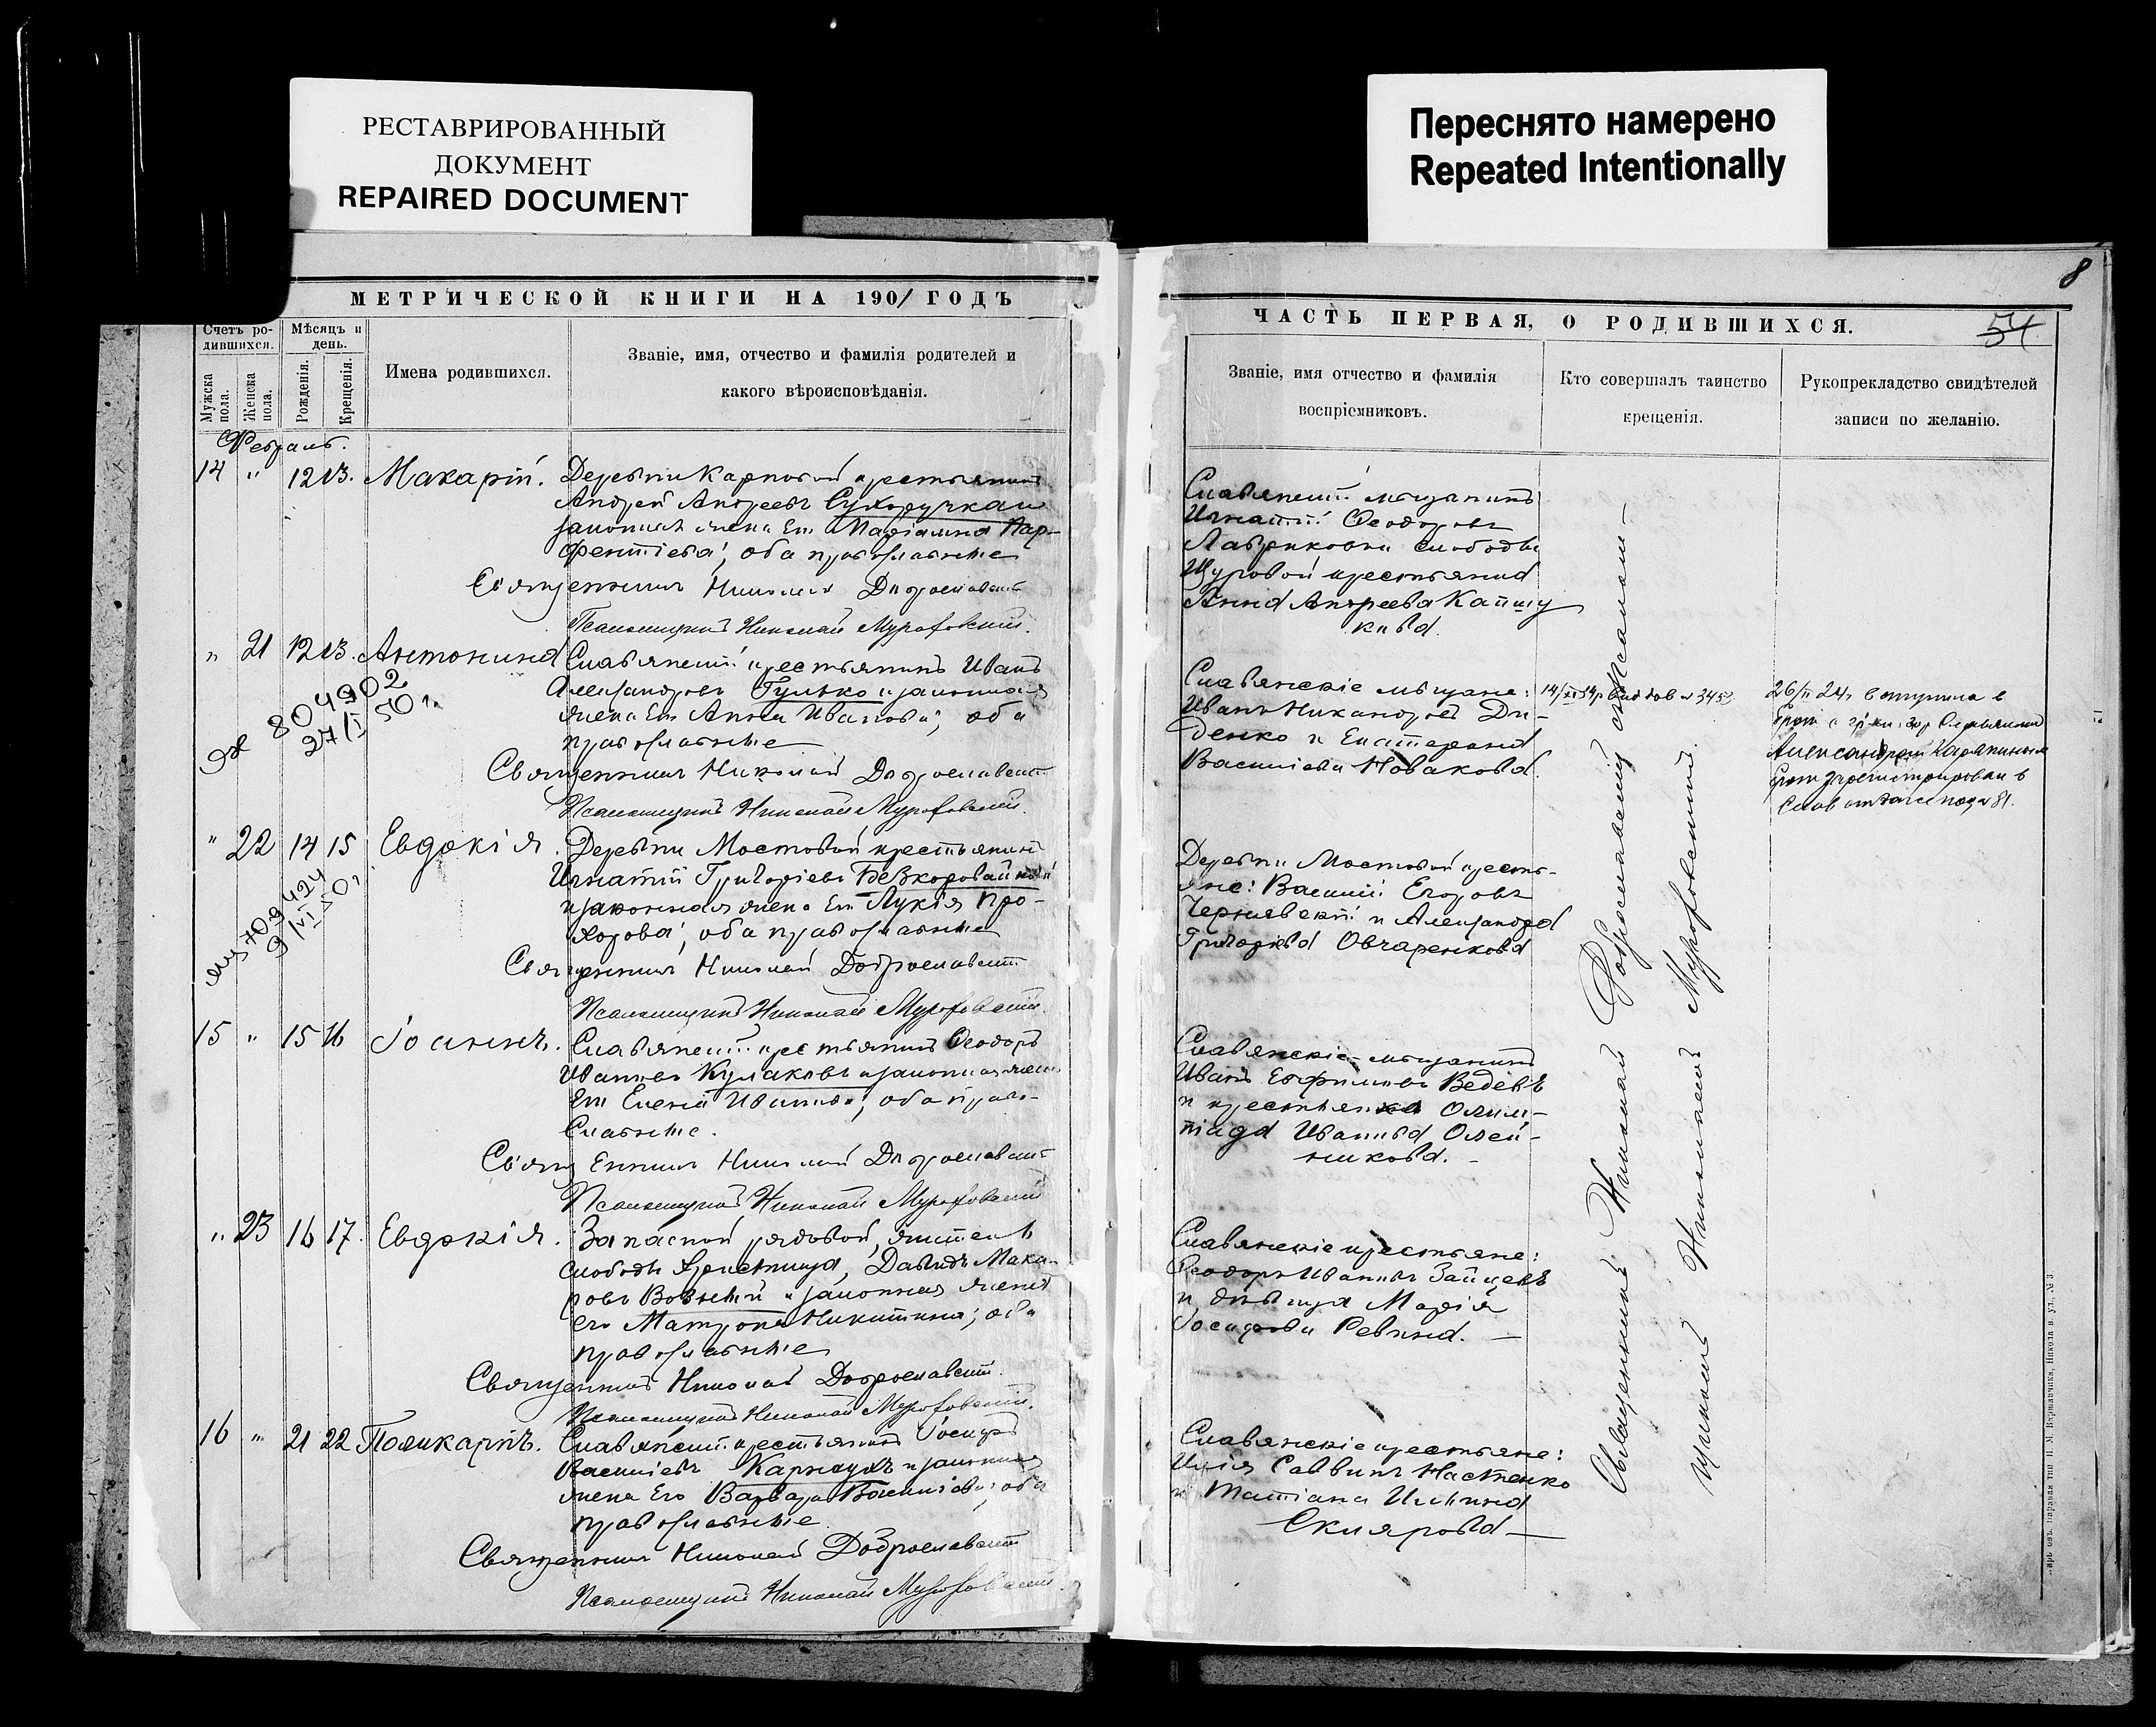 РЕСТАВРИРОВАННЫЙ
ДОКУМЕНТ
REPAIRED DOCUMENT
Переснято намерено
Repeated Intentionally
МЕТРИЧЕСКОЙ КНИГИ НА 1901 ГОДЪ
Счетъ ро-
дившихся.
Мѣсяцъ и
день.
Мужска
пола.
Женска
пола.
Рожденія.
Крещенія.
Имена родившихся.
Званіе, имя, отчество и фамилія родителей и
какого вѣроисповѣданія.
Февраль.
14 " 12 13. Макарій. Деревни Карповой крестьянинъ
Андрей Андреевъ Сухоручкин
законная жена его Маріамна Пар-
фентіева; оба православные
Священникъ Николай Доброславскій
Псаломщикъ Николай Мурафовскій.
" 21 12 13. Антонина Славянскій крестьянинъ Иванъ
Александровъ Гулько и законная
жена его Анна Иванова; оба
православные
804902
27/I 50 г.
Священникъ Николай Доброславскій
Псаломщикъ Николай Мурафовскій.
" 22 14 15 Евдокія. Деревни Мостовой крестьянинъ
Игнатій Григоріевъ Безкоровайный
и законная жена его Лукія Про-
хорова; оба православные
709424
9/VI 50 г.
Священникъ Николай Доброславскій
Псаломщикъ Николай Мурафовскій.
15 " 15 16 Іоаннъ. Славянскій крестьянинъ Ѳеодоръ
Ивановъ Кулаковъ и законная жена
его Елена Иванова; оба право-
славные.
Священникъ Николай Доброславскій
Псаломщикъ Николай Мурафовскій
" 23 16 17. Евдокія. Запасной рядовой, житель
слободы Христища, Давидъ Мака-
ровъ Возный и законная жена
его Матрона Никитина; оба
православные
Священникъ Николай Доброславскій.
Псаломщикъ Николай Мурафовскій.
16 " 21 22 Поликарпъ. Славянскій крестьянинъ Іосифъ
Василіевъ Карнаухъ и законная
жена его Варвара Василіева; оба
православные
Священникъ Николай Доброславскій
Псаломщикъ Николай Мурафовскій.
8
ЧАСТЬ ПЕРВАЯ, О РОДИВШИХСЯ.
54.
Званіе, имя отчество и фамилія
воспріемниковъ.
Кто совершалъ таинство
крещенія.
Рукоприкладство свидѣтелей
записи по желанію.
Славянскій мѣщанинъ
Игнатій Ѳеодоровъ
слободы
Щуровой крестьянка
Анна Андреева
Славянскіе мѣщане:
Иванъ Никандровъ Ди-
денко и Екатерина
Василіева Новакова.
26/II 24 г. вступила в
брак с
Александром Карякиным
Брак зарегистрирован в
под № 81.
Деревни Мостовой кресть-
яне: Василій Егоровъ
Чернявскій и Александра
Григоріева Овчаренкова
Славянскіе мѣщанинъ
Иванъ Евфиміевъ Ведевъ
и крестьянка Олим-
піада Иванова Олей-
никова.
Славянскіе крестьяне:
Ѳеодоръ Ивановъ Зайцевъ
и дѣвица Марія
Іосифова Ревина.
Славянскіе крестьяне:
Илія Саввинъ Настенко
и Татіана Ильина
Склярова
Священникъ Николай Доброславскій съ псалом-
щикомъ Николаемъ Мурафовскимъ.